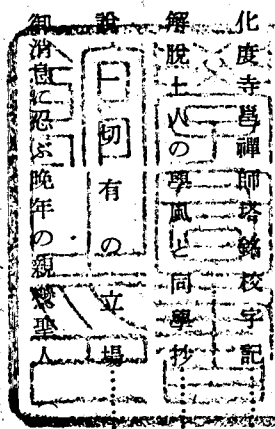 化度寺邕禪師塔銘校字記………
解脫上人の學風と同學抄………
說一切有の立場………
御消息に忍ぶ晩年の親鸞聖人